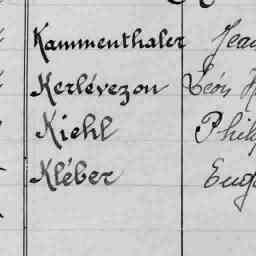 Kammenthaler Jea
Kerlévezon Léon
Kiehl Phil
Kléber Eug